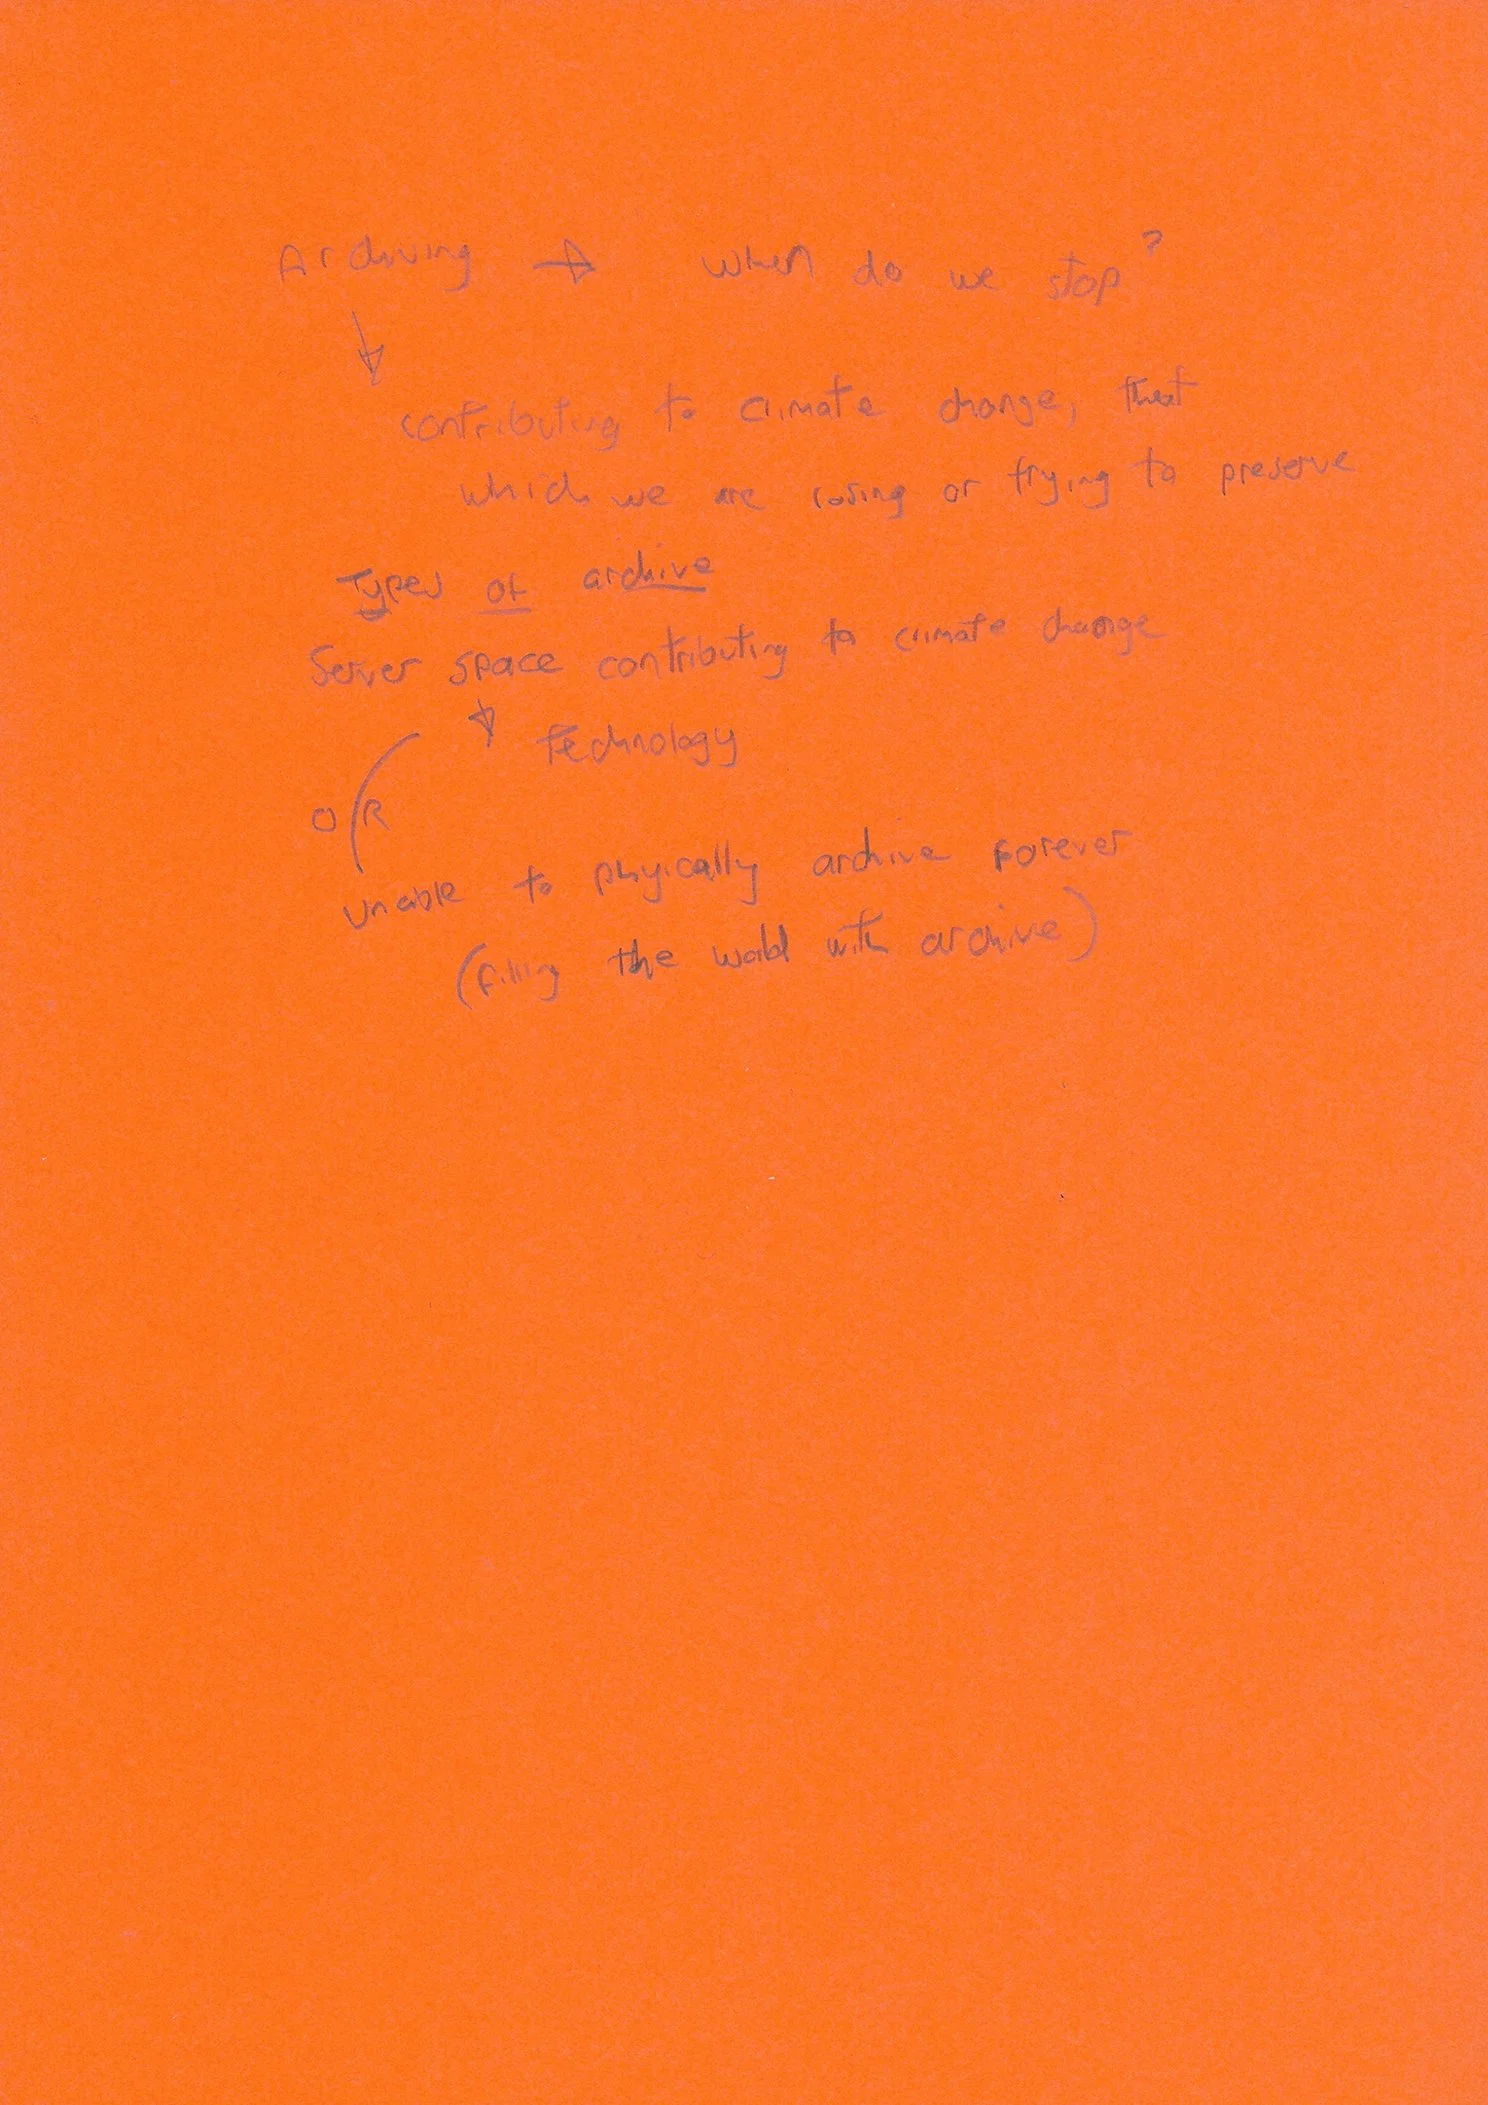 Archiving → when do we stop?
↓
contributing to climate change, that
which we are losing or trying to preserve
Types of archive
Server space contributing to climate change
↓ Technology
OR
unable to phyically archive forever
(filling the world with archive)